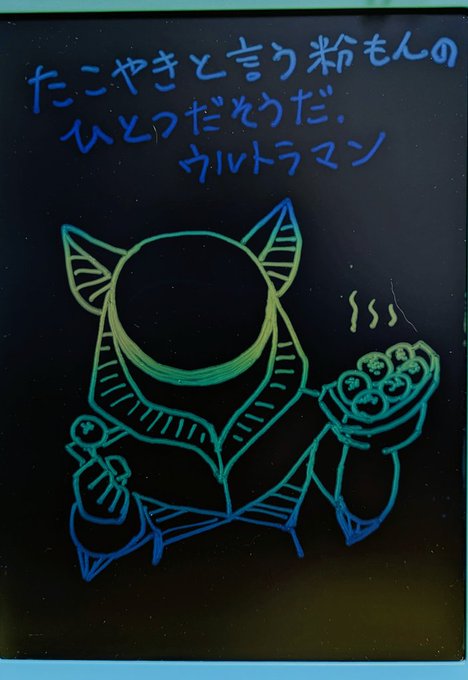 たこやきと言う粉もんの
ひとつだそうだ.
ウルトラマン